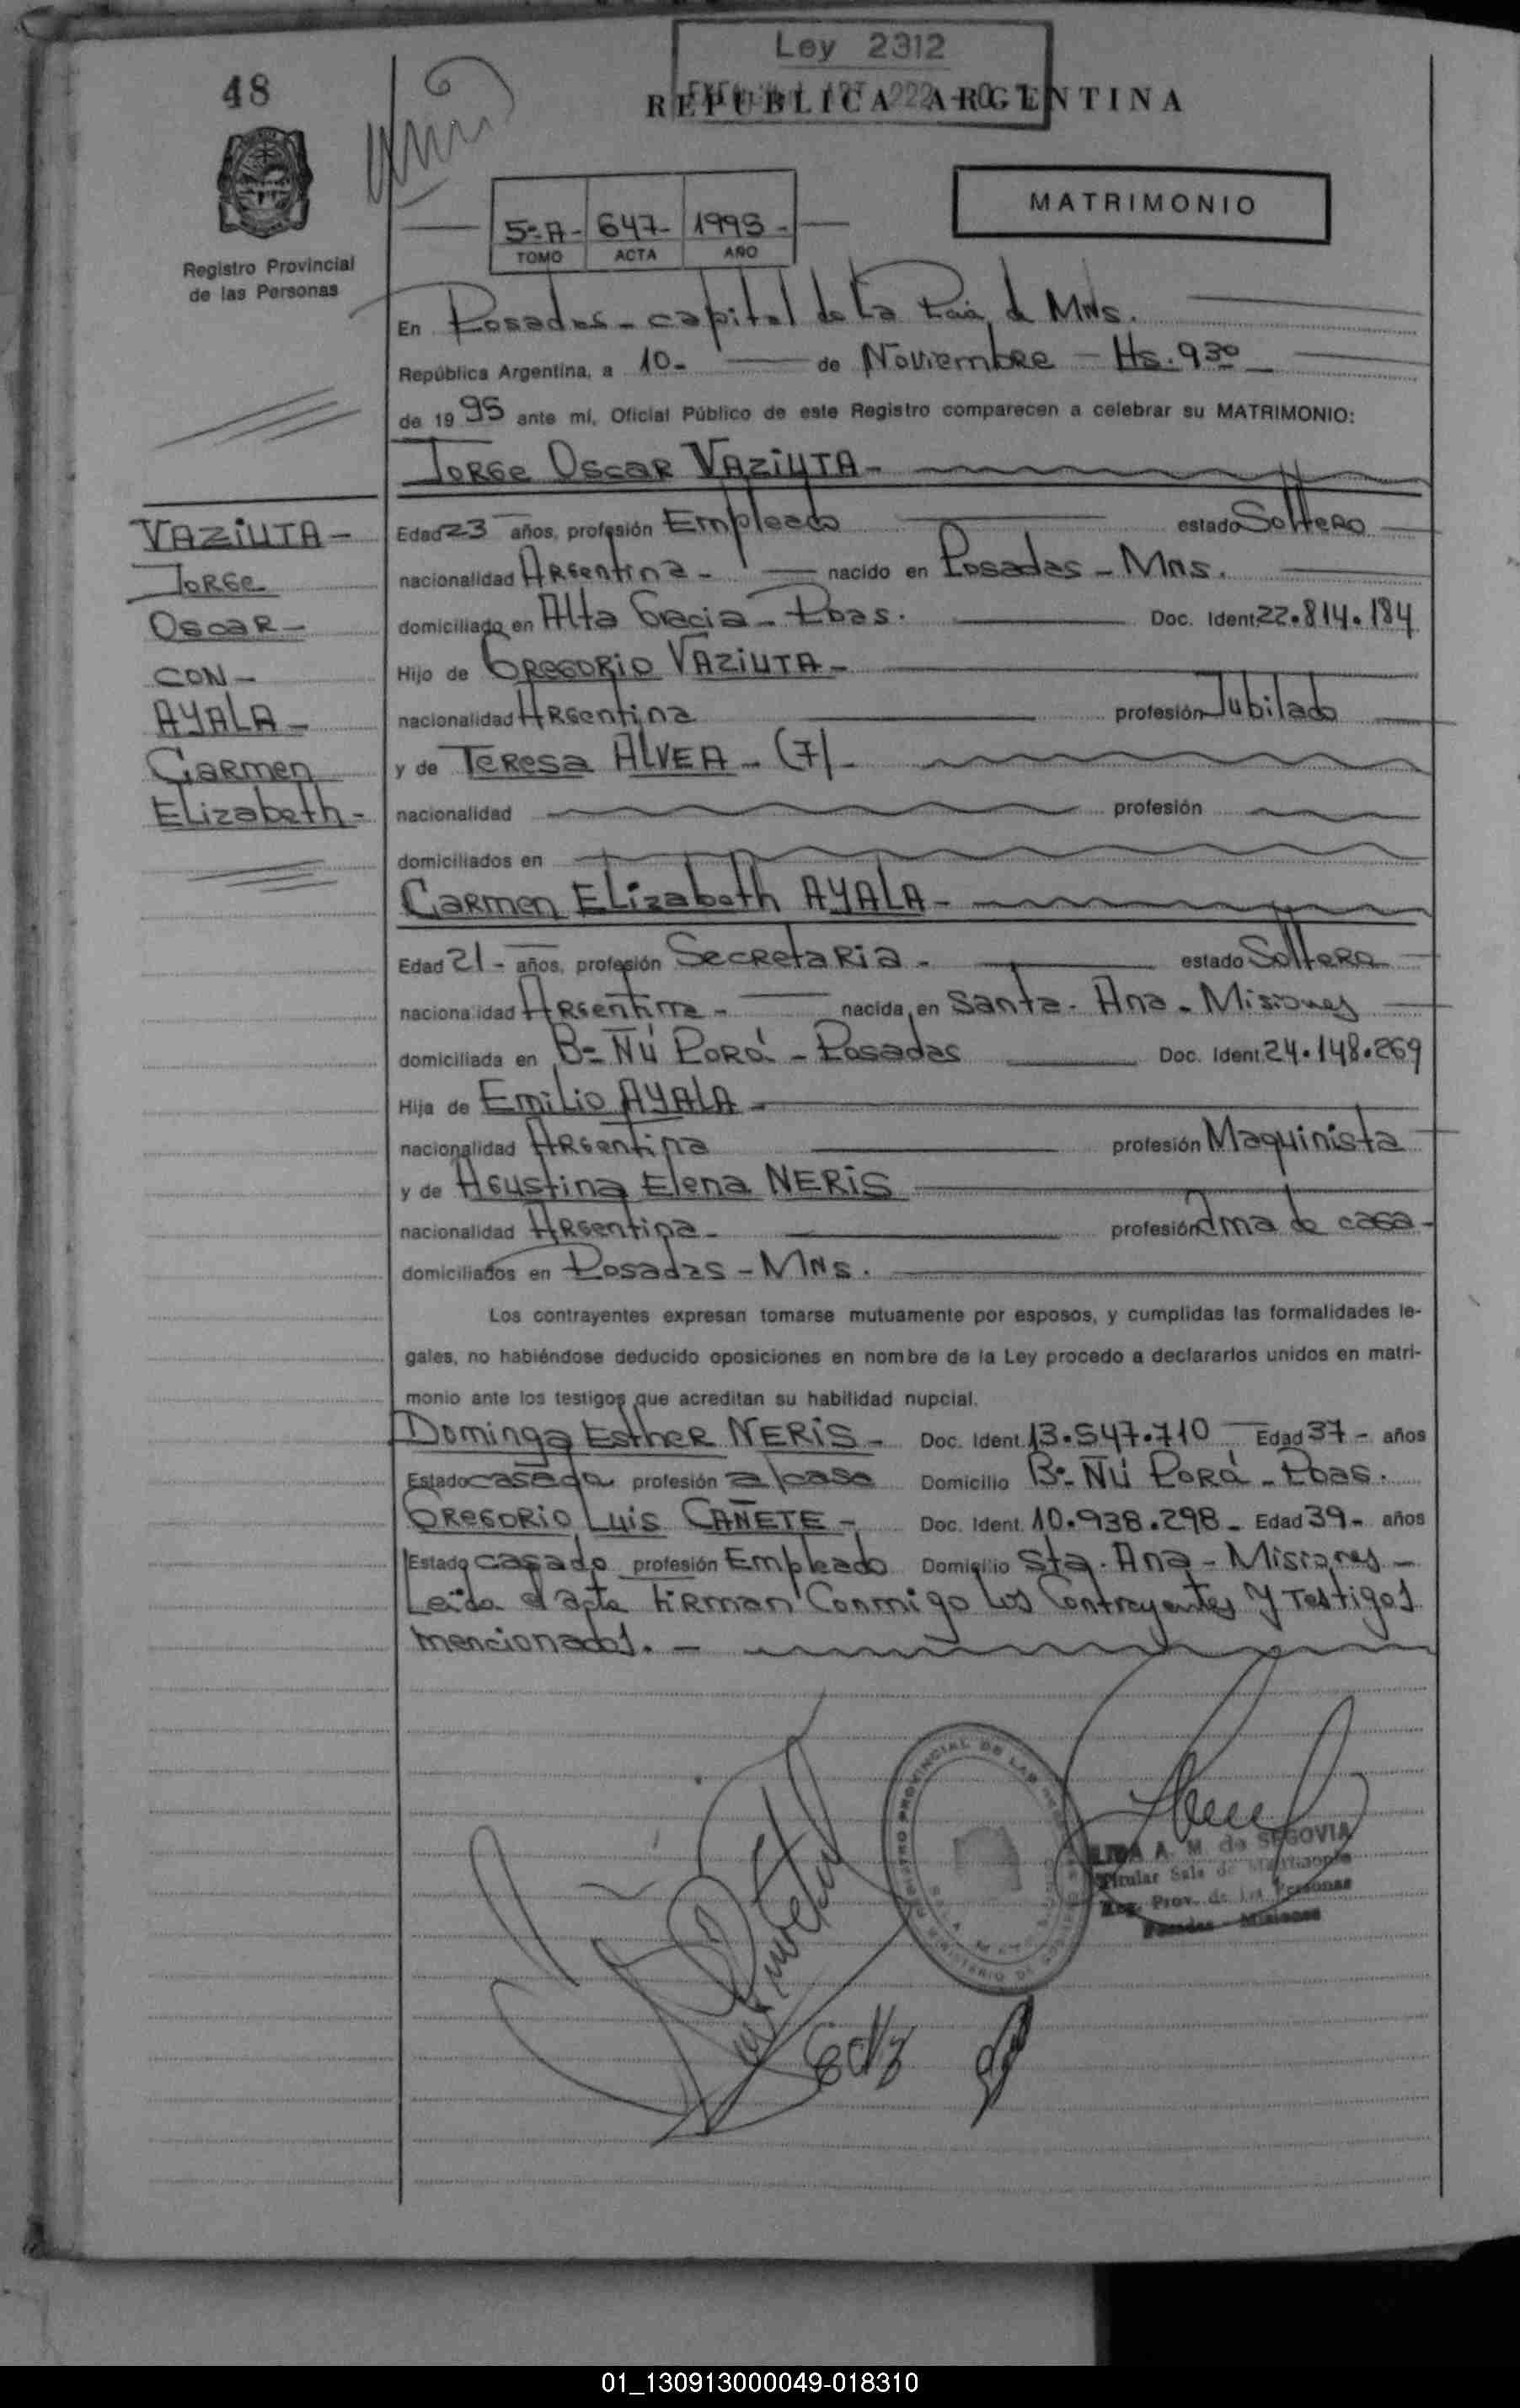 48
Ley 2312
REPUBLICA ARGENTINA
MATRIMONIO
5º-A- 647- 1995-
TOMO ACTA AÑO
Registro Provincial
de las Personas
En Posadas - capital de la Pcia. de Mns.
República Argentina, a 10- de Noviembre - Hs. 9 30
de 19 95 ante mi, Oficial Público de este Registro comparecen a celebrar su MATRIMONIO:
Jorge Oscar VAZIUTA-
VAZIUTA-
Jorge
Oscar-
CON-
AYALA-
Carmen
Elizabeth-
Edad 23 años, profesión Empleado estado Soltero
nacionalidad Argentina- nacido en Posadas - Mns.
domiciliado en Alta Gracia - Pdas. Doc. Ident. 22.814.184
Hijo de GREGORIO VAZIUTA-
nacionalidad Argentina profesión Jubilado
y de Teresa ALVEA -
nacionalidad profesión
domiciliados en
Carmen Elizabeth AYALA-
Edad 21- años, profesión Secretaria- estado Soltera
nacionalidad Argentina- nacida en Santa- Ana- Misiones
domiciliada en Bº Ñú Porá - Posadas Doc. Ident. 24.148.269
Hija de Emilio AYALA-
nacionalidad Argentina profesión Maquinista
y de Agustina Elena NERIS
nacionalidad Argentina- profesión ama de casa-
domiciliados en Posadas - Mns.
Los contrayentes expresan tomarse mutuamente por esposos, y cumplidas las formalidades le-
gales, no habiéndose deducido oposiciones en nombre de la Ley procedo a declararlos unidos en matri-
monio ante los testigos que acreditan su habilidad nupcial.
Dominga Esther NERIS- Doc. Ident. 13.547.710 Edad 37- años
Estado casada profesión a/casa Domicilio Bº- Ñú Porá - Pdas.
GREGORIO Luis CAÑETE- Doc. Ident. 10.938.298- Edad 39- años
Estado casado profesión Empleado Domicilio Sta. Ana - Misiones-
Leída el acta firman conmigo los contrayentes y testigos
mencionados.-
A. M. de SEGOVIA
Titular Sala de Matrimonio
Reg. Prov. de las Personas
Posadas - Misiones
01_130913000049-018310